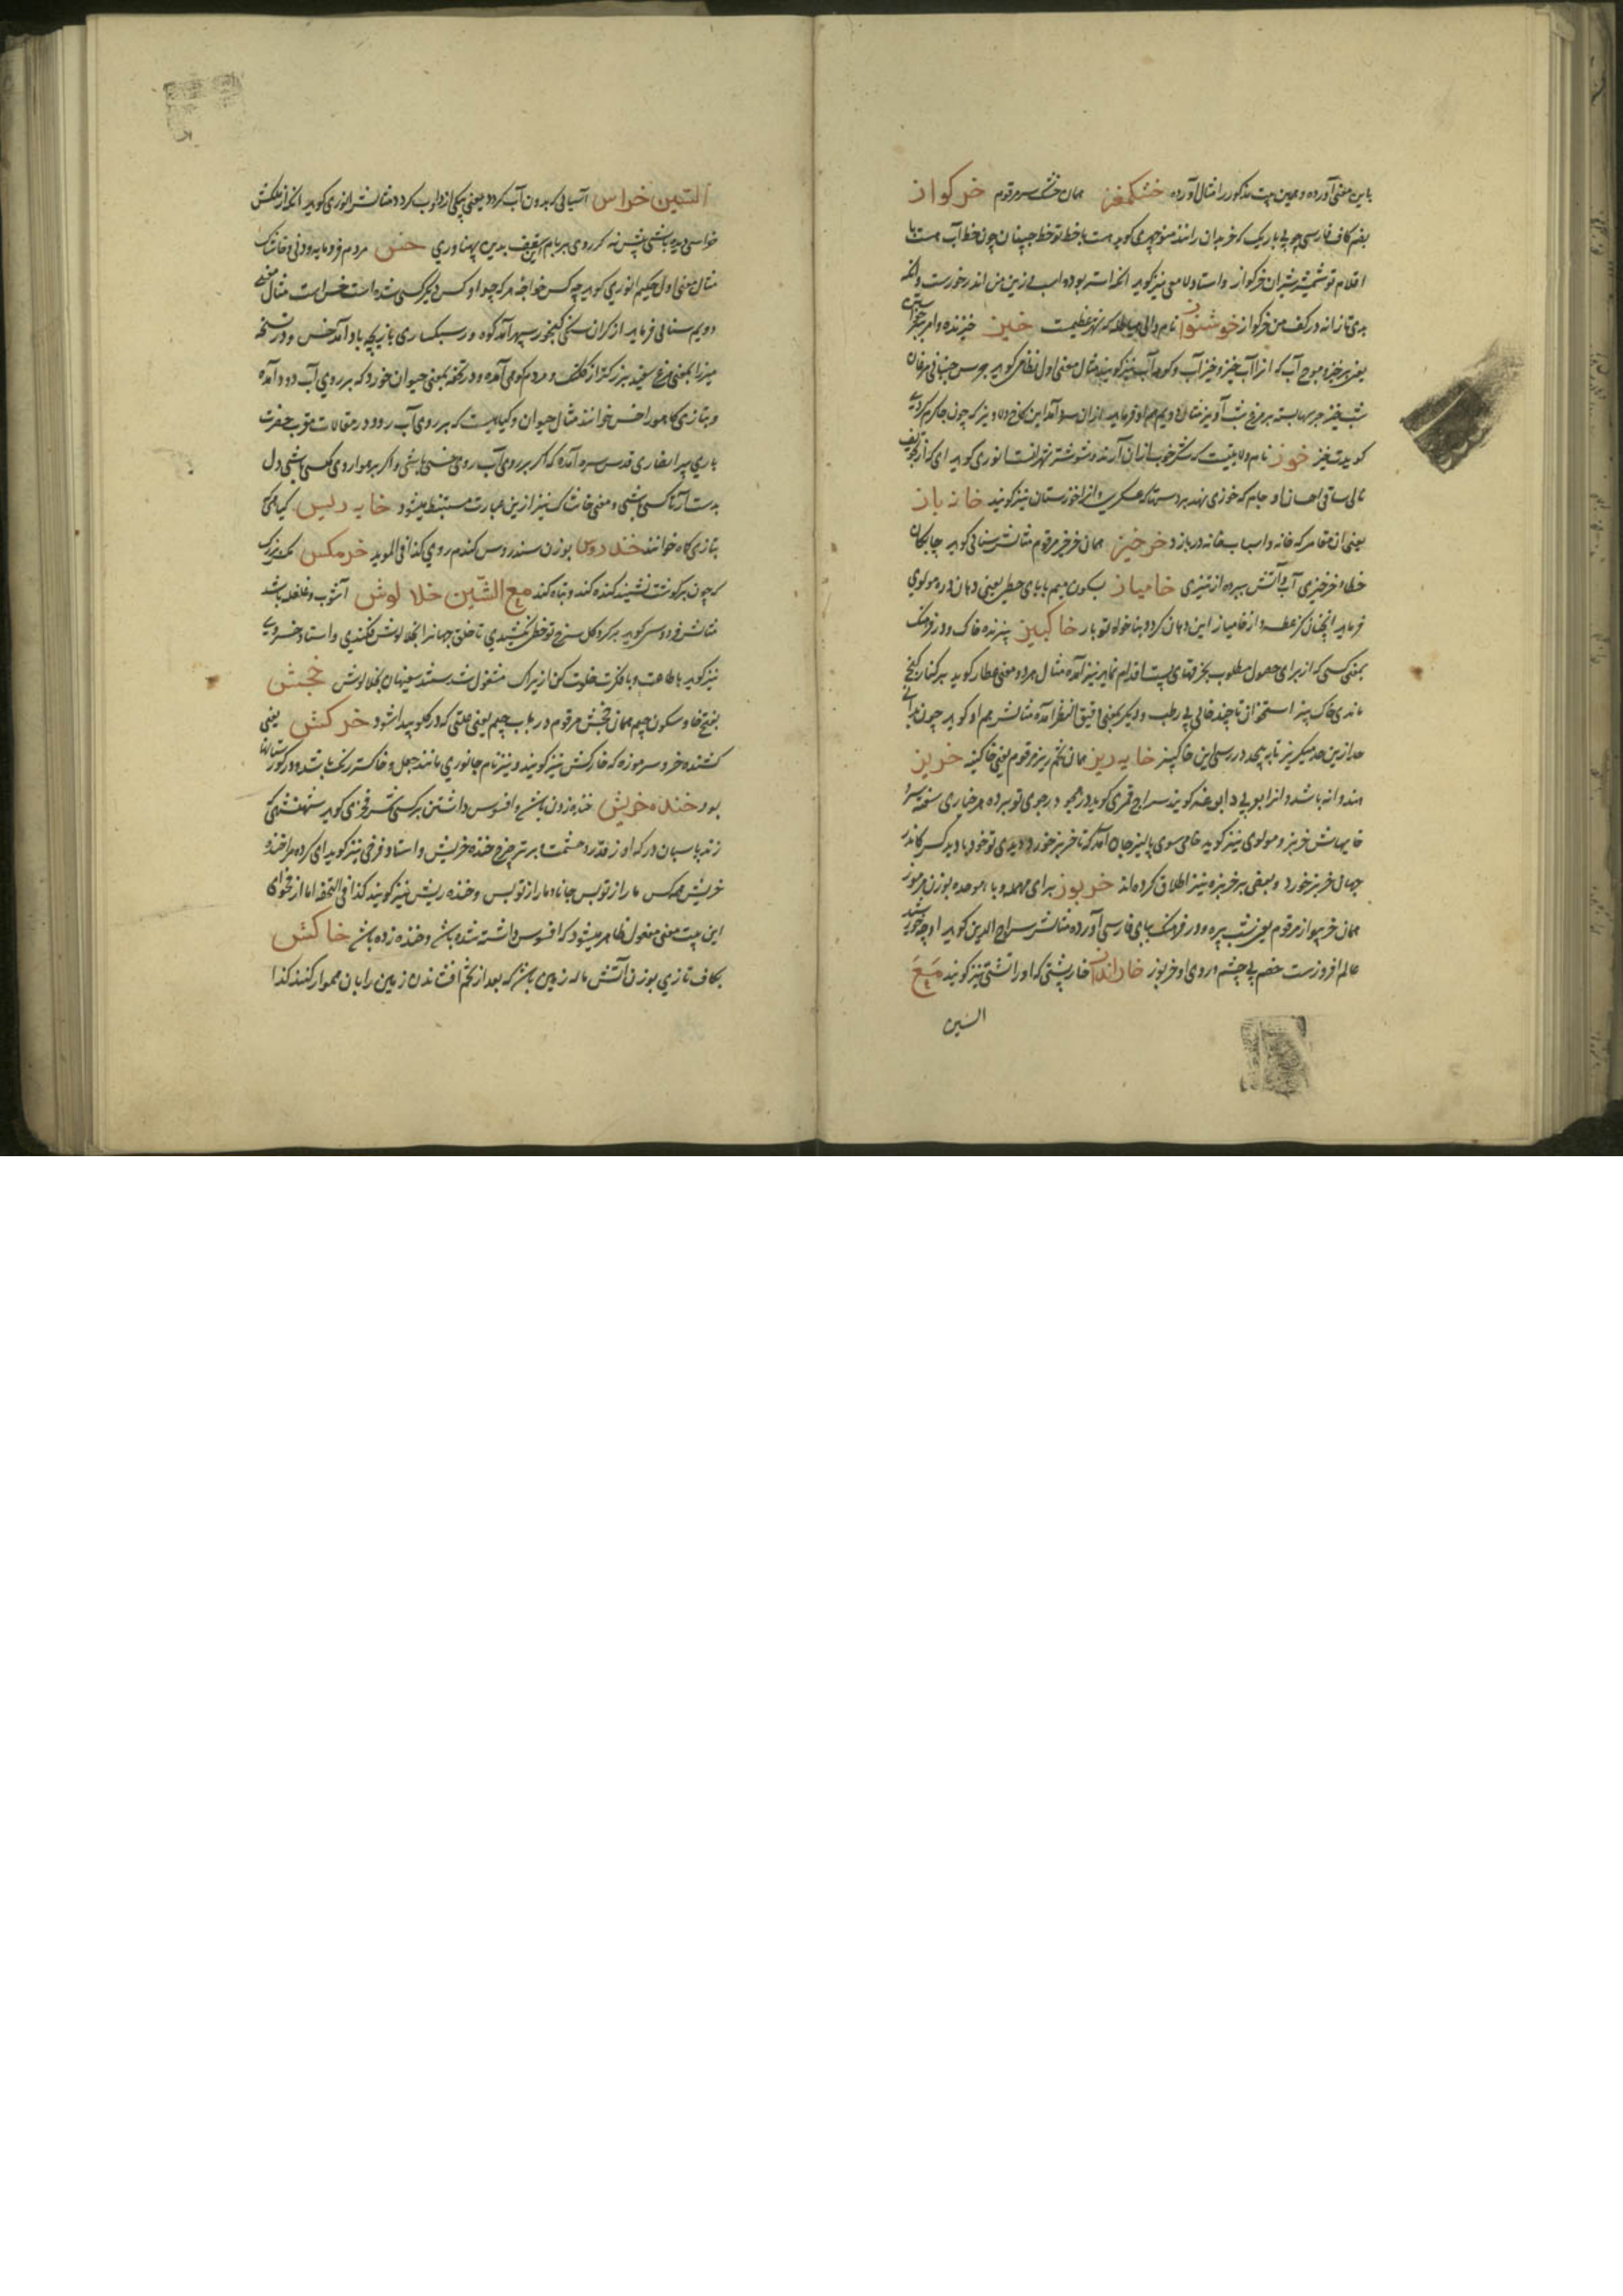 باین معنی آورده و همین بیت مذکور را مثال آورده خشکمغز همان خشک سر مرقوم خرکواز
بضم کاف فارسی چوبی باریک که خر بدان رانند منوچهری کوید هست با خط تو خط چینیان چون خط آب هست با
اقلام تو شمشیر شیران خرکواز و استاد نیز کوید انکه استر بوده اسب از من اندر خورست وانکه
بدی تازانه در کف من خرکواز خوشنواز نام والی هیاطله که شهر عظیمست خیز خیزنده و امر
یعنی برخیز و موج آب که انرا آب خیز و خیز آب و کوهه آب نیز کویند مثال معنی اول نظامی کوید جرس جنبانی مرغان
شب خیز جرسها بسته بر مرغ شب آویز مثال دویم هم او فرماید
کویدت خیز خوز نام ولایتیست که شکر خوب از ان آرند و شوشتر شهر انست انوری کوید ای که از
ساقی احسان او جام که خوزی نهد بر دست و انرا خوزستان نیز کویند خانه باز
یعنی ان مقامر که خانه و اسباب خانه در بازد خرخیز همان خرخر مرقوم مثالش سنائی کوید چابکان
خطا و خرخیزی آب و آتش ببرده از تیزی خامیاز بسکون میم با یای حطی یعنی دهان دره مولوی
فرماید انچنان کز عطسه و از خامیاز این دهان کردد بناخواه تو باز خاکبیز بیزنده خاک و در فرهنک
بمعنی کسی که از برای حصول مطلوب بحرفتهای پست اقدام نماید نیز آمده مثال هر دو معنی عطار کوید بر کنار کنجی
مانده خاک بیز استخوان تا چند خائی بی رطب و دیکر بمعنی دقیق النظر آمده مثالش هم او کوید چون
خاک بیز خایه ریز همان تخم ریز مرقوم یعنی خاکینه خربز
هندوانه باشد و انرا بعربی کویند سراج قمری کوید
خایهاش خربز و مولوی نیز کوید خامی سوی پالیز جان آمد که تا خربز خورد دیدی تو خود یا دید کس کاندر
جهان خر بز خورد و بعضی بر خربزه نیز اطلاق کرده اند خربوز برای مهمله و باء موحده بوزن مرموز
همان خربیواز مرقوم یعنی شب پره و در فرهنک ببای فارسی آورده مثالش سراج الدین کوید او چو خورشید
عالم افروزست خصم بی چشم و روی او خربوز خارانداز خارپشتی که او را تشی نیز کویند مع
السین
السین خراس آسیائی که بدون آب کردد یعنی یکی از دواب کرد مثالش انوری کوید انکه از ملکش
خراسی دیده باشی پیش نه کر روی بر بام این سقف بدین پهناوری خس مردم فرومایه و دنی و خاشاک
مثال معنی اول حکیم انوری کوید چه کس خواجه هر که چو او کس دیکر کسی شده است خس است مثال معنی
دویم سنائی فرماید از کران سنکی کنجور سپهر آمد کوه وز سبکساری بازیچه باد آمد خس و در نسخه
میرزا بمعنی مرغ سفید بزرکتر از کلنک و مردم کوهی آمده و در تحفه بمعنی حیوان خورد که بر روی آب دود آمده
و بتازی کاهو را خس خوانند مثال حیوان و کیاهیست که بر روی آب رود در مقالات مقرب حضرت
باری پیر انصاری قدس سره آمده که اکر بر روی آب روی خسی باشی و اکر بر هوا روی مکسی باشی دل
بدست آر تا کسی باشی و معنی خاشاک نیز از این عبارت مستنبط میشود خایه دیس کیاهی که
بتازی کماه خوانند خندروس بوزن سندروس کندم رومی کذا فی الموید خرمکس مکس بزرک
که چون بر کوشت نشیند کنده کند و تباه کند مع الشین خلالوش آشوب و غلغله باشد
مثالش فردوسی کوید بر کرد کل سرخ تو خطی بکشیدی تا خلق جهانرا بخلالوش فکندی و استاد خسروی
نیز کوید با طاعت و با فکرت خلوت کن ازیراک مشغول شدستند سفیهان بخلالوش خجش
بفتح خا و سکون جیم همان بخجش مرقوم در باب جیم یعنی علتی که در کلو پیدا شود خرکش یعنی
کشنده خر و سر موزه که خارکش نیز کویند و نیز نام جانوری مانند جعل و خاکستر رنک باشد و در کورستانها
بود خنده خریش خنده زدن باشد و افسوس داشتن بر کسی شرف فخری کوید شهنشهی که
زند پاسبان درکه او ز قدر و حشمت بر تیر چرخ خنده خریش و استاد فرخی نیز کوید ای کرده مرا خنده
خریش همه کس ما را ز تو بس جانا ما را ز تو بس و خنده ریش نیز کویند کذا فی التحفه اما از فحوای
این بیت معنی مفعول ظاهر میشود که افسوس داشته شده باشد و خنده زده باشد خاکش
بکاف تازی بوزن آتش ماله زمین باشد که بعد از تخم افشاندن زمین را بان هموار کنند کذا